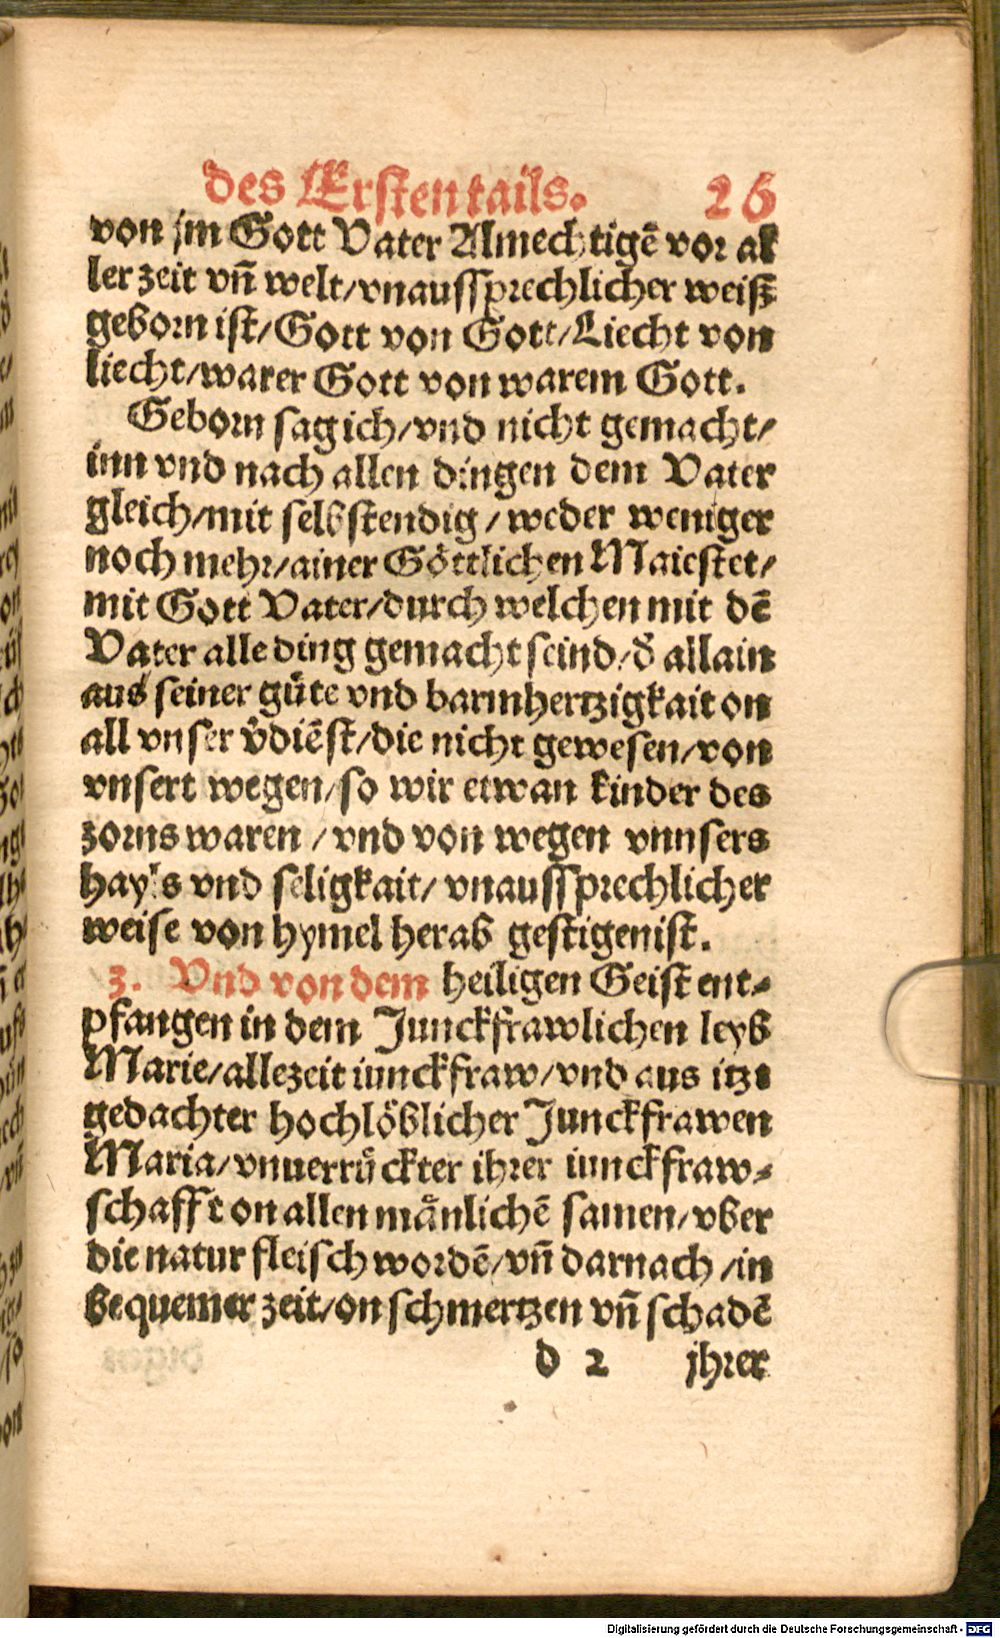 des Ersten tails. 26
von jm Gott Vater Almechtigẽ vor al
ler zeit vñ welt/vnaussprechlicher weiß
geborn ist/Gott von Gott/Liecht von
liecht/warer Gott von warem Gott.
Geborn sag ich/vnd nicht gemacht/
inn vnd nach allen dingen dem Vater
gleich/mit selbstendig/weder weniger
noch mehr/ainer Göttlichen Maiestet/
mit Gott Vater/durch welchen mit dẽ
Vater alle ding gemacht seind/d̕ allain
aus seiner güte vnd barmhertzigkait on
all vnser v̕diẽst/die nicht gewesen/von
vnsert wegen/so wir etwan kinder des
zorns waren/vnd von wegen vnnsers
hayls vnd seligkait/vnaussprechlicher
weise von hymel herab gestigen ist.
3. Vnd von dem heiligen Geist ent-
pfangen in dem Junckfrawlichen leyb
Marie/allezeit iunckfraw/vnd aus itzt
gedachter hochlöblicher Junckfrawen
Maria/vnuerrückter ihrer iunckfraw-
schafft on allen mänlichẽ samen/vber
die natur fleisch wordẽ/vñ darnach/in
bequemer zeit/on schmertzen vñ schadẽ
d 2 jhrer
Digitalisierung gefördert durch die Deutsche Forschungsgemeinschaft - DFG